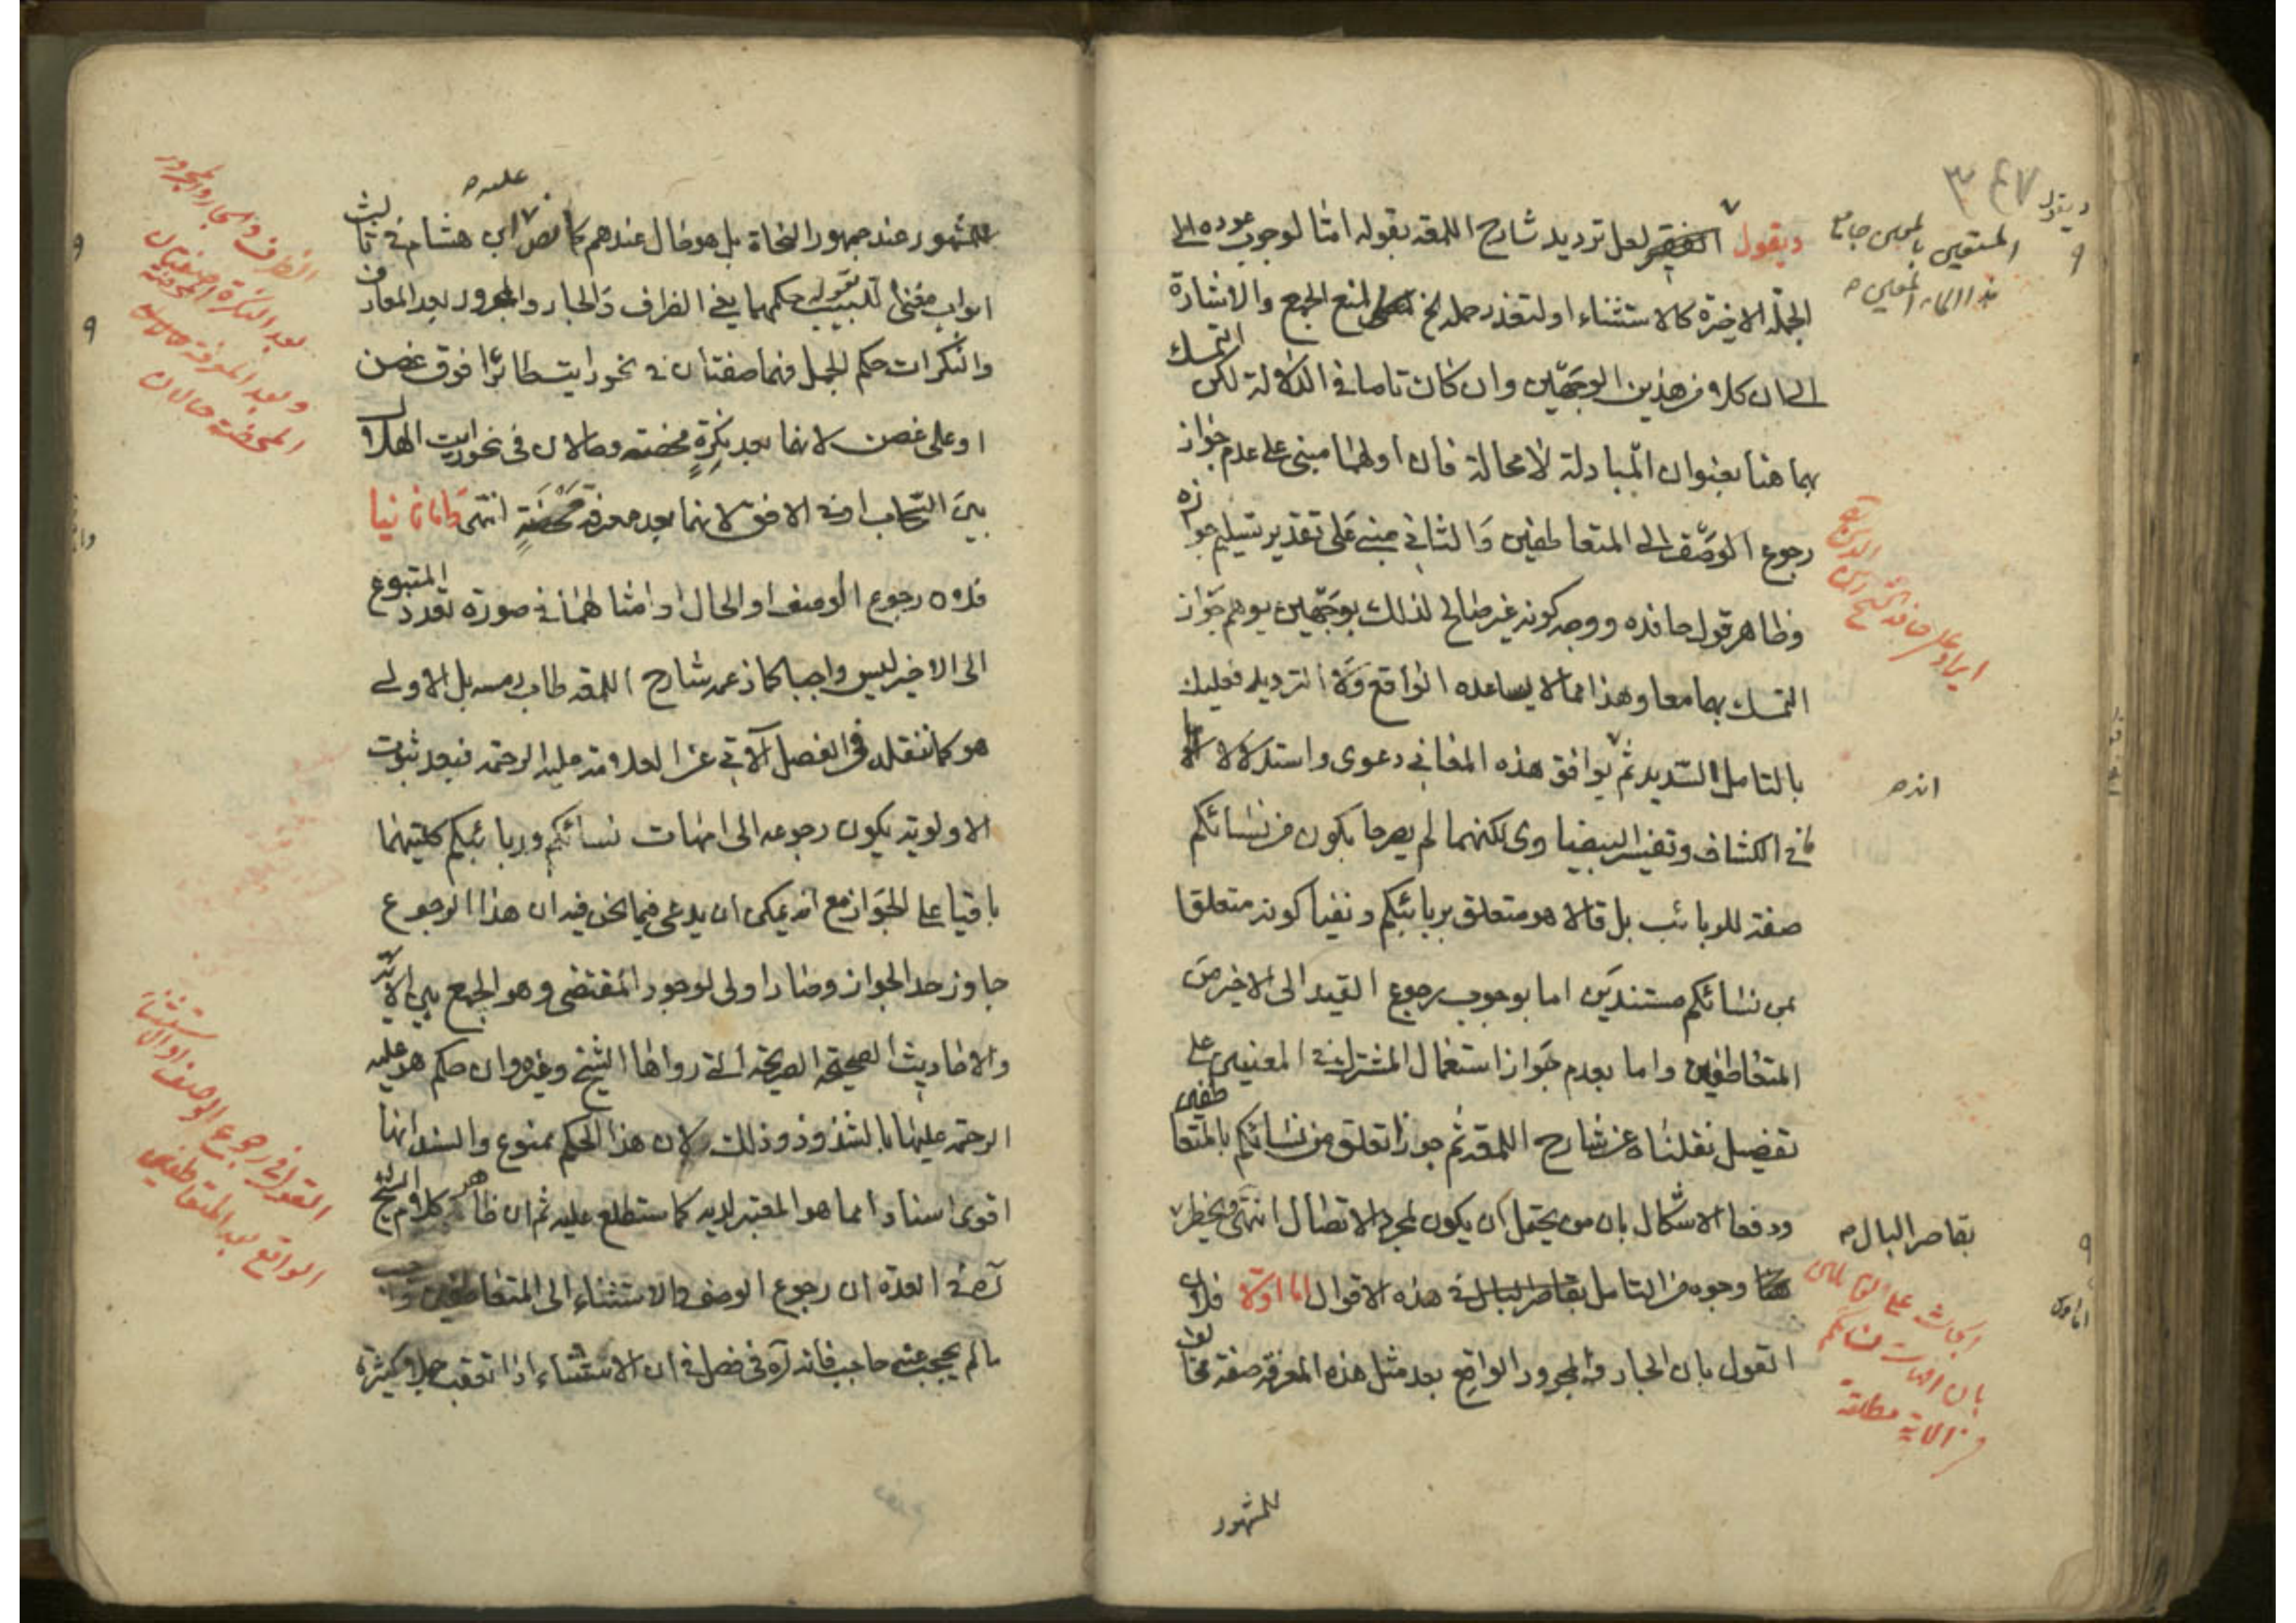 ٣٤٧
ويقول
المستعين بالمعين جامع
هذا الكتاب المعين
ويقول الفقير لعل ترديد شارح اللمعة بقوله امّا لوجوب عوده الى
الجملة الاخيرة كالاستثناء او لتعذر حمله الخ لمنع الجمع والاشارة
الى ان كلا من هذين الوجهين وان كان تاما في الدلالة لكن التمسك
بهما هنا بعنوان المبادلة لا محالة فان اولهما مبني على عدم جواز
رجوع الوصف الى المتعاطفين والثاني مبني على تقدير تسليم جوازه
وظاهر قول حافده ووجه كونه غير صالح لذلك بوجهين يوهم جواز
التمسك بهما معا وهذا مما لا يساعده الواقع ولا الترديد فعليك
بالتامل السديد ثم يوافق هذه المعاني دعوى واستدلالا
في الكشاف وتفسير البيضاوى لكنهما لم يصرحا بكون من نسائكم
صفة للربائب بل قالا هو متعلق بربائبكم ونفيا كونه متعلقا
بمن نسائكم مستندين اما بوجوب رجوع القيد الى الاخير من
المتعاطفين واما بعدم جواز استعمال المشترك في المعنيين على
تفصيل نقلناه عن شارح اللمعة ثم جوزا تعلق من نسائكم بالمتعاطفين
ودفعا الاشكال بان من يحتمل ان يكون لمجرد الاتصال انتهى ويخطر
وجوه من التامل بقاصر البال في هذه الاقوال اما اولا فلان
القول بان الجار والمجرور الواقع بعد مثل هذه المعرفة صفة مخالف
للمشهور
ايراد على حافد الشيخ زين الدين
انه
بقاصر البال
ابحاث على القائلين
بان امهات نسائكم
في الاية مطلقة
عليه
للمشهور عند جمهور النحاة بل هو حال عندهم كما نص ابن هشام في ثالث
ابواب مغنى اللبيب بقوله حكمهما يعني الظرف والجار والمجرور بعد المعارف
والنكرات حكم الجمل فهما صفتان في نحو رايت طائرا فوق غصن
او على غصن لانهما بعد نكرة محضة وحالان في نحو رايت الهلال
بين السحاب او في الافق لانهما بعد معرفة محضة انتهى واما ثانيا
فلان رجوع الوصف او الحال او امثالهما في صورة تعدد المتبوع
الى الاخير ليس واجبا كما زعمه شارح اللمعة طاب رمسه بل الاولى
هو كما ننقله في الفصل الآتي عن العلامة عليه الرحمة فبعد ثبوت
الاولوية يكون رجوعه الى امهات نسائكم وربائبكم كلتيهما
باقيا على الجواز مع انه يمكن ان يدعى فيما نحن فيه ان هذا الرجوع
جاوز حد الجواز وصار اولى لوجود المقتضى وهو الجمع بين الآية
والاحاديث الصحيحة الصريحة التي رواها الشيخ وغيره وان حكم هو عليه
الرحمة عليها بالشذوذ وذلك لان هذا الحكم ممنوع والسند انها
اقوى اسنادا مما هو المعتبر لديه كما ستطلع عليه ثم ان ظاهر كلام الشيخ
ره في العدة ان رجوع الوصف والاستثناء الى المتعاطفين واجب
ما لم يحجب عنه حاجب فانه ره في فصل في ان الاستثناء اذا تعقب جملا كثيرة
الظرف والجار والمجرور
بعد النكرة المحضة صفتان
وبعد المعرفة
المحضة حالان
القول في رجوع الوصف او الاستثناء
الواقع بعد المتعاطفين